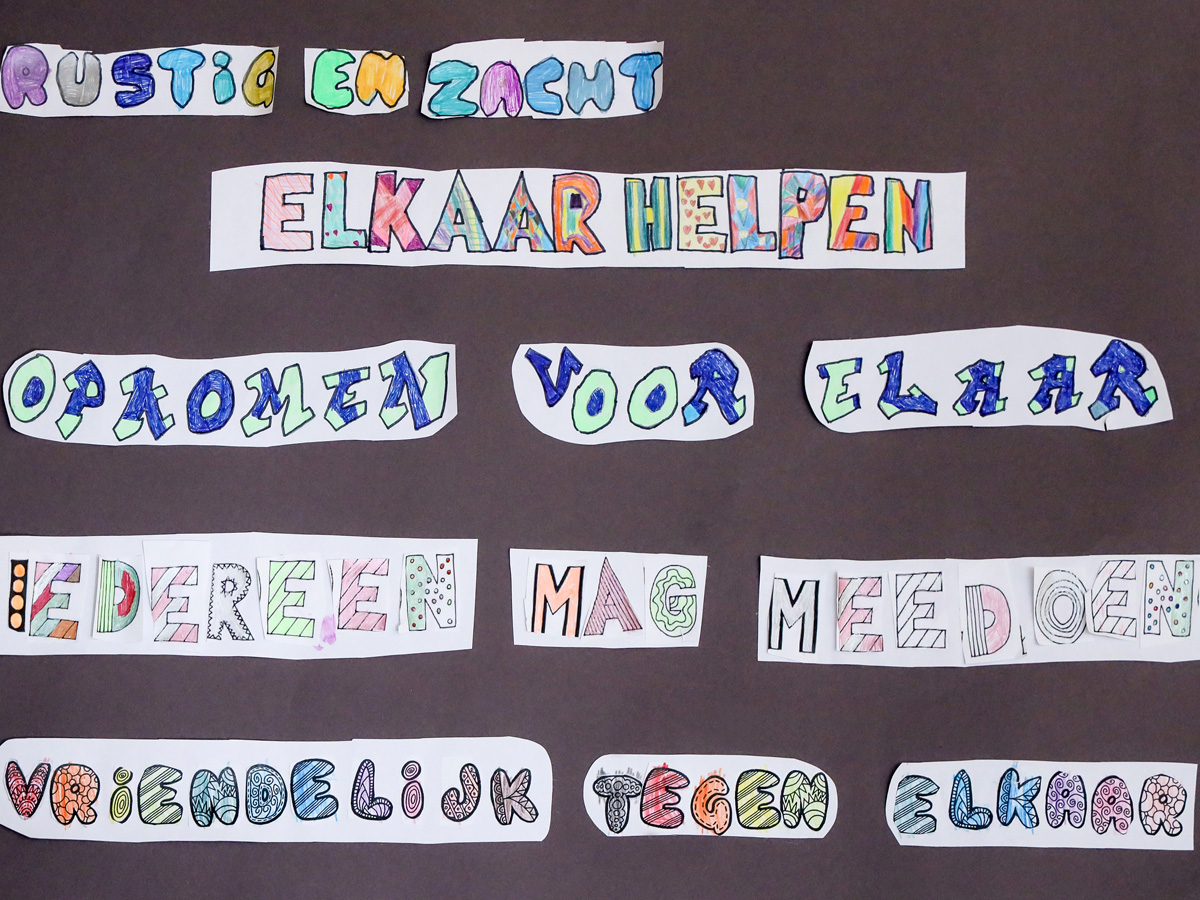 RUSTiG EN ZACHT
ELKAAR HELPEN
OPKOMEN VOOR ELAAR
IEDEREEN MAG MEEDOEN
VRiENDELiJK TEGEN ELKAAR